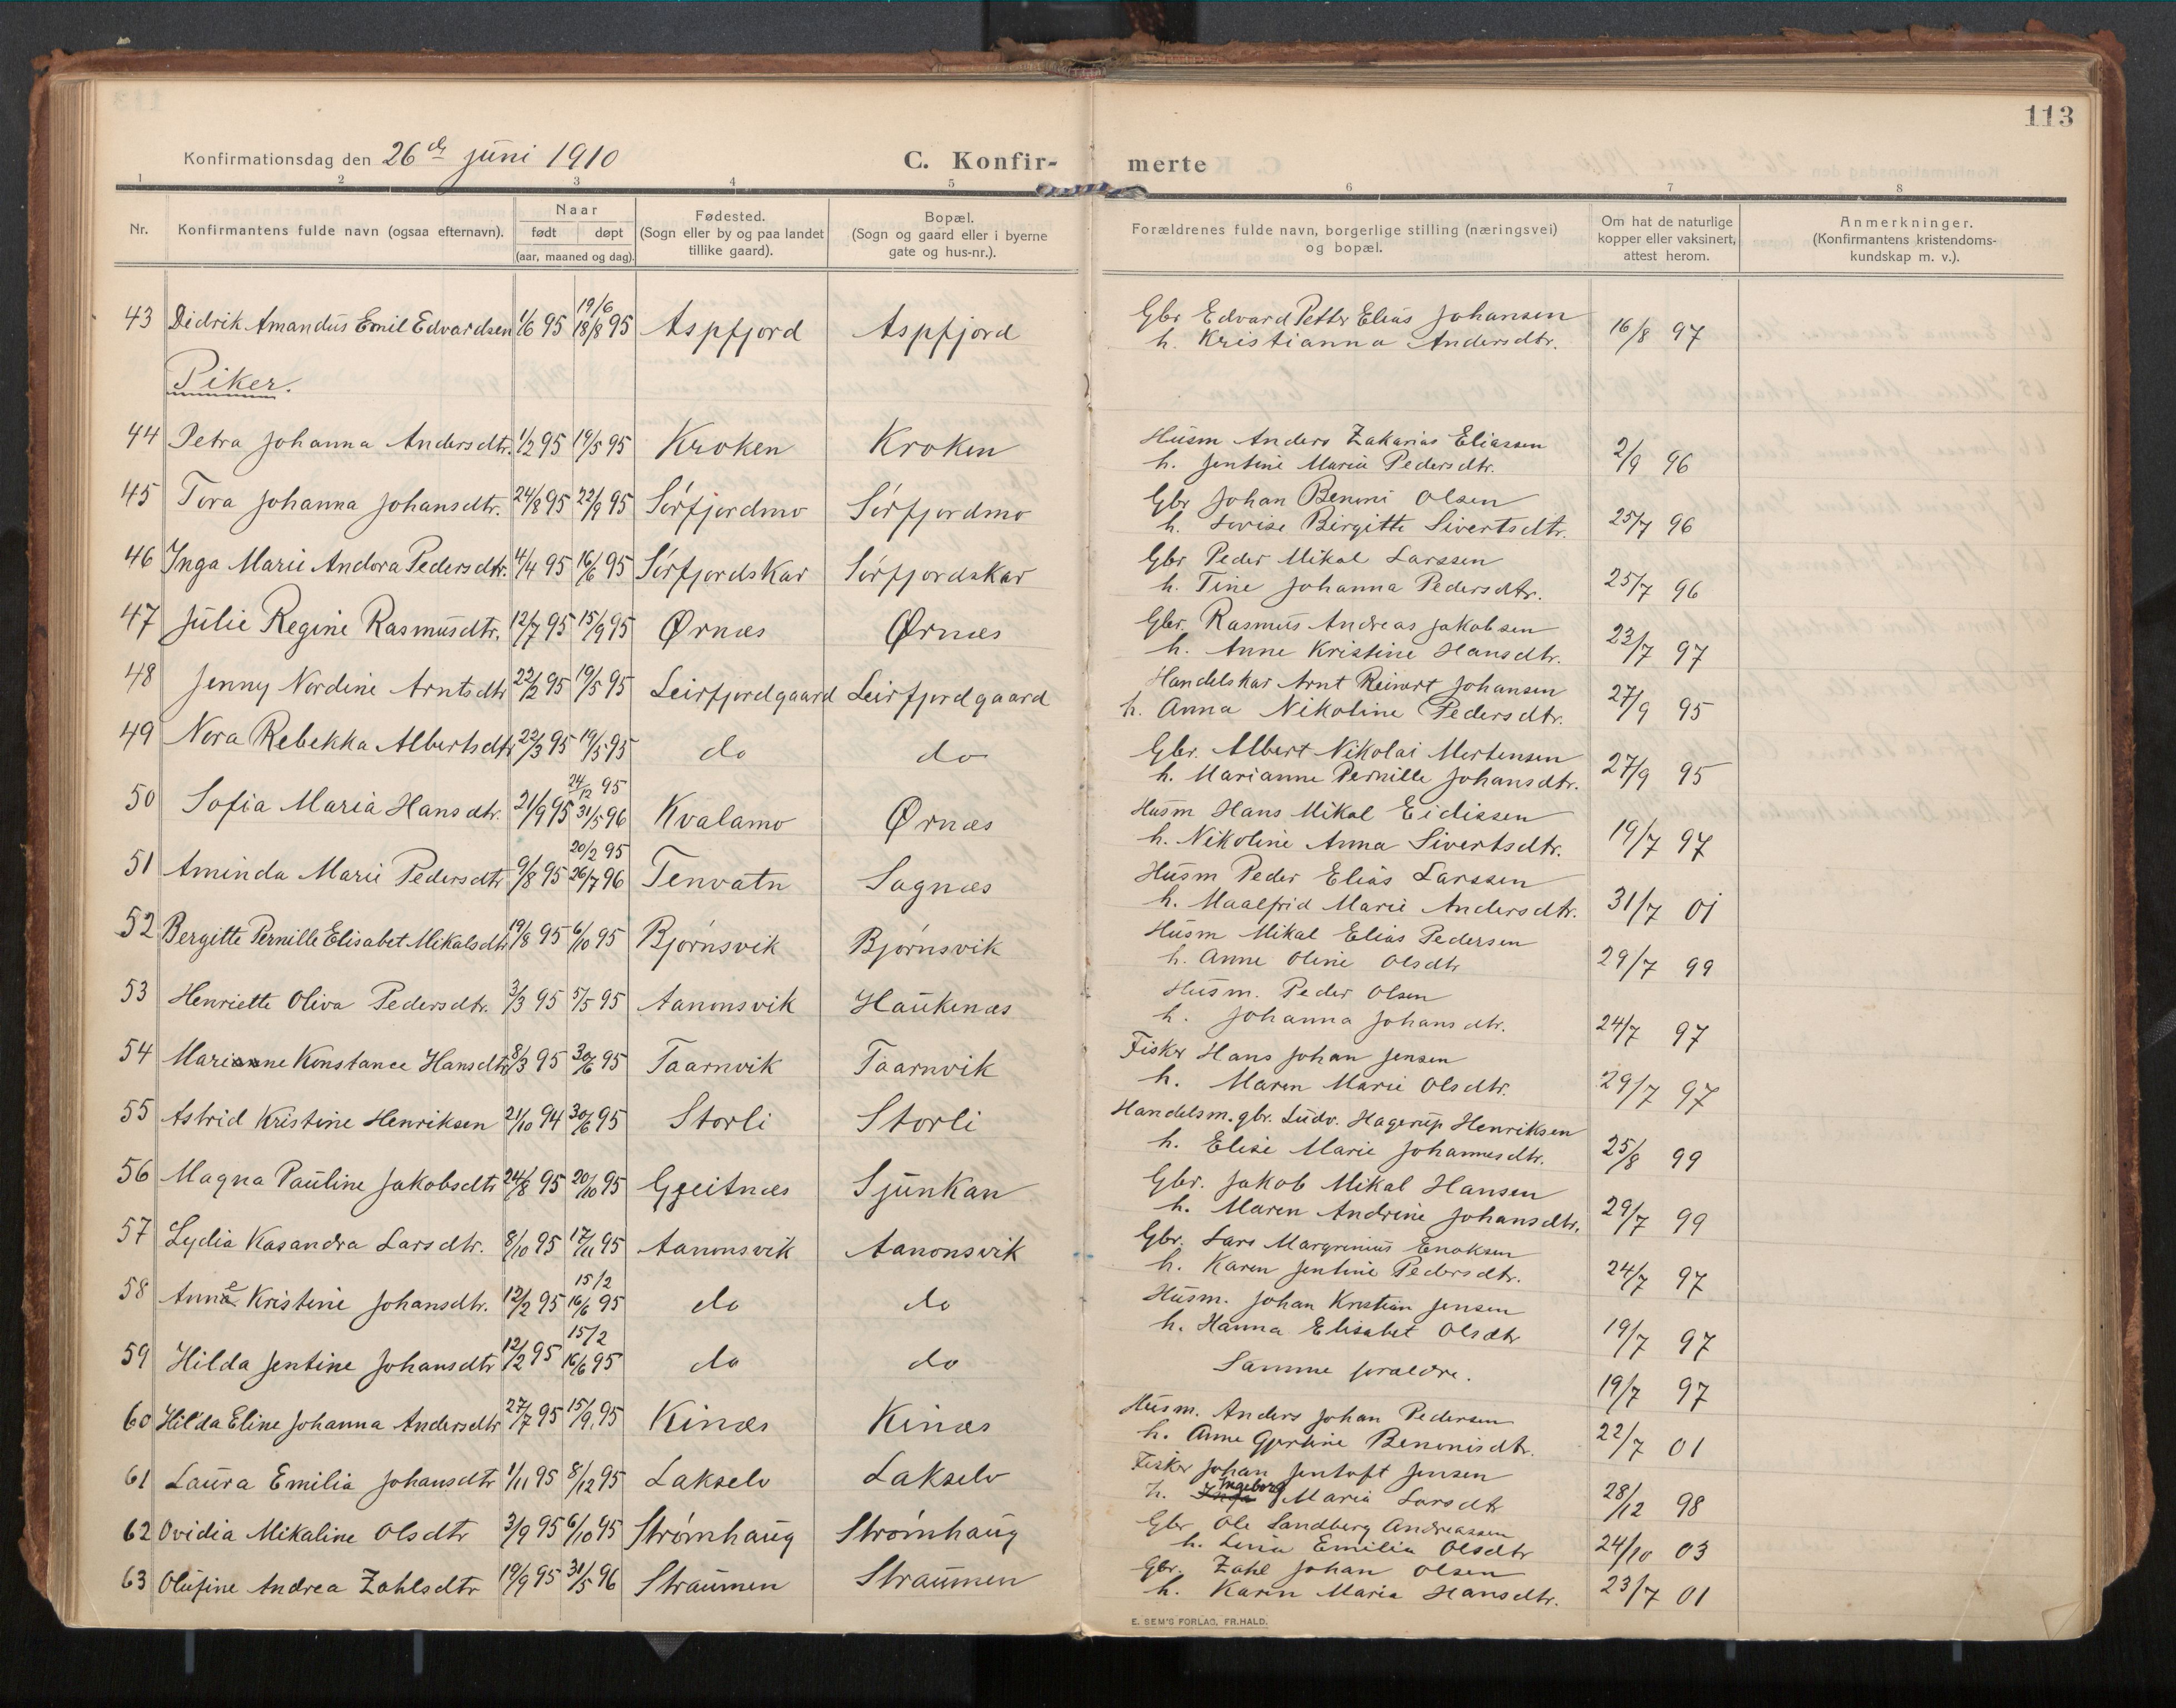 113
Konfirmationsdag den 26de juni 1910 C. Konfir- merte
1 2 3 4 5 6 7 8
Nr. Konfirmantens fulde navn (ogsaa efternavn). Naar født døpt (aar, maaned og dag). Fødested. (Sogn eller by og paa landet tillike gaard). Bopæl. (Sogn og gaard eller i byerne gate og hus-nr.). Forældrenes fulde navn, borgerlige stilling (næringsvei) og bopæl. Om hat de naturlige kopper eller vaksinert, attest herom. Anmerkninger. (Konfirmantens kristendoms- kundskap m. v.).
43 Didrik Amandus Emil Edvardsen 1/6 95 19/6 18/8 95 Aspfjord Aspfjord Gbr Edvard Petter Elias Johansen
h. Kristianna Andersdtr. 16/8 97
Piker.
44 Petra Johanna Andersdtr. 1/2 95 19/5 95 Kroken Kroken Husm Anders Zakarias Eliassen
h. Jentine Maria Pedersdtr. 2/9 96
45 Tora Johanna Johansdtr. 24/8 95 22/9 95 Sørfjordmo Sørfjordmo Gbr Johan Benoni Olsen
h. Lovise Birgitte Sivertsdtr. 25/7 96
46 Inga Marie Andora Pedersdtr. 4/4 95 16/6 95 Sørfjordskar Sørfjordskar Gbr Peder Mikal Larssen
h. Tine Johanna Pedersdtr. 25/7 96
47 Julie Regine Rasmusdtr. 12/7 95 15/9 95 Ørnæs Ørnæs Gbr. Rasmus Andreas Jakobsen
h. Anne Kristine Hansdtr. 23/7 97
48 Jenny Nordine Arntsdtr 22/2 95 19/5 95 Leirfjordgaard Leirfjordgaard Handelskar Arnt Reinert Johansen
h. Anna Nikoline Pedersdtr. 27/9 95
49 Nora Rebekka Albertsdtr 22/3 95 19/5 95 do do Gbr. Albert Nikolai Mortensen
h. Marianne Pernille Johansdtr. 27/9 95
50 Sofia Maria Hansdtr. 21/9 95 24/12 95 31/5 96 Kvalamo Ørnæs Husm Hans Mikal Eidissen
h. Nikoline Anna Sivertsdtr. 19/7 97
51 Aminda Marie Pedersdtr 9/8 95 20/2 95 26/7 96 Tenvatn Sagnæs Husm Peder Elias Larssen
h. Maalfrid Marie Andersdtr. 31/7 01
52 Bergitte Pernille Elisabet Mikalsdtr 19/8 95 6/10 95 Bjørnsvik Bjørnsvik Husm Mikal Elias Pedersen
h. Anne Oline Olsdtr 29/7 99
53 Henriette Oliva Pedersdtr. 3/3 95 5/5 95 Aanonsvik Haukenæs Husm. Peder Olsen
h. Johanna Johansdtr. 24/7 97
54 Marianne Konstance Hansdtr 8/3 95 30/6 95 Taarnvik Taarnvik Fisker Hans Johan Jensen
h. Maren Marie Olsdtr. 29/7 97
55 Astrid Kristine Henriksen 21/10 94 30/6 95 Storli Storli Handelsm. gbr. Ludv. Hagerup Henriksen
h. Elise Marie Johannesdtr. 25/8 99
56 Magna Pauline Jakobsdtr 24/8 95 20/10 95 Gjeitnæs Sjunkan Gbr. Jakob Mikal Hansen
h. Maren Andrine Johansdtr. 29/7 99
57 Lydia Kasandra Larsdtr. 8/10 95 17/11 95 Aanonsvik Aanonsvik Gbr. Lars Margrinius Enoksen
h. Karen Jentine Pedersdtr. 24/7 97
58 Anne Kristine Johansdtr. 12/2 95 15/2 16/6 95 do do Husm. Johan Kristian Jensen
h. Hanna Elisabet Olsdtr 19/7 97
59 Hilda Jentine Johansdtr 12/2 95 15/2 16/6 95 do do Samme forældre. 19/7 97
60 Hilda Eline Johanna Andersdtr 27/7 95 15/9 95 Kinæs Kinæs Husm. Anders Johan Pedersen
h. Anne Gjertine Benonisdtr. 22/7 01
61 Laura Emilia Johansdtr 1/11 95 8/12 95 Lakselv Lakselv Fisker Johan Jentoft Jensen
h. Ingeborg Maria Larsdtr 28/12 98
62 Ovidia Mikaline Olsdtr 3/9 95 6/10 95 Strømhaug Strømhaug Gbr Ole Sandberg Andreassen
h. Lina Emilia Olsdtr 24/10 03
63 Olufine Andrea Zahlsdtr 19/9 95 31/5 96 Straumen Straumen Gbr. Zahl Johan Olsen
h. Karen Maria Hansdtr. 23/7 01
E. SEM'S FORLAG, FR.HALD.